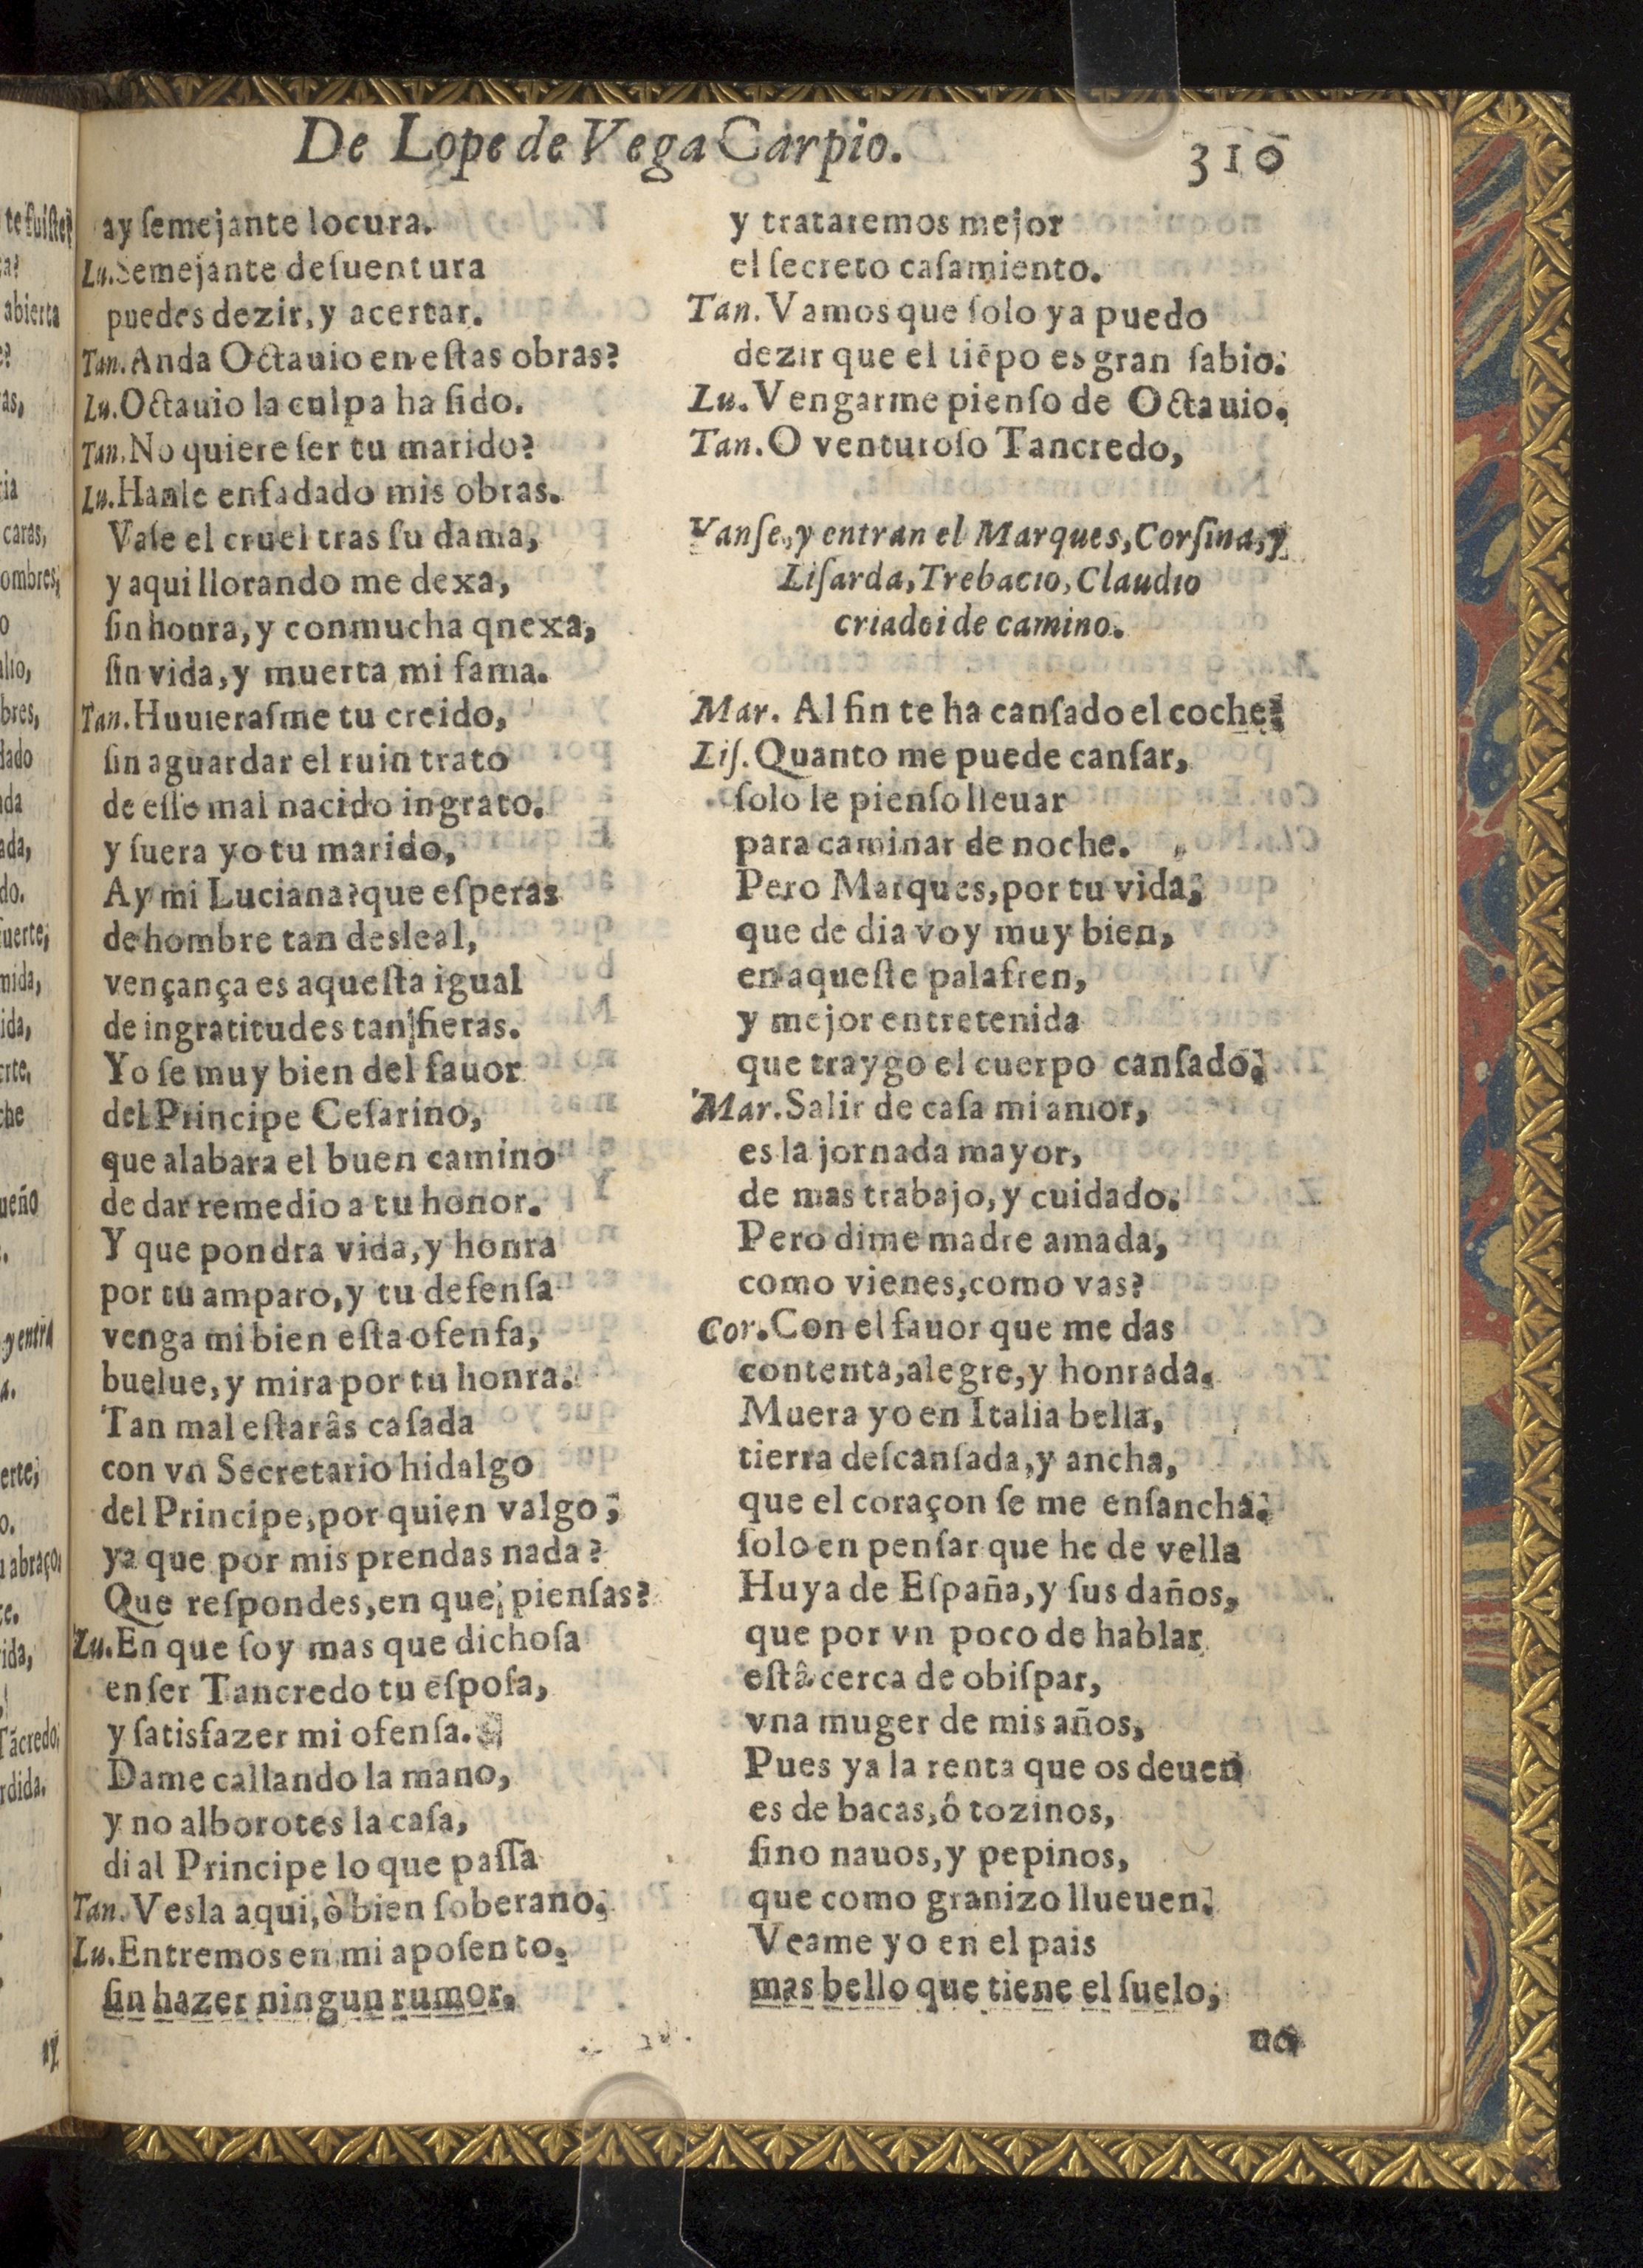 De Lope de Vega Carpio.
310
ay ſemejante locura.
Lu.Semejante deſuentura
puedes dezir, y acertar.
Tan.Anda Octauio en eſtas obras?
Lu.Octauio la culpa ha ſido.
Tan.No quiere ſer tu marido?
Lu.Hanle enfadado mis obras.
Vaſe el cruel tras ſu dama,
y aqui llorando me dexa,
ſin honra, y conmucha qnexa,
ſin vida, y muerta mi fama.
Tan.Huuieraſme tu creido,
ſin aguardar el ruin trato
de eſſe mal nacido ingrato.
y fuera yo tu marido,
Ay mi Luciana? que eſperas
de hombre tan desleal,
vençança es aqueſta igual
de ingratitudes tan fieras.
Yo ſe muy bien del fauor
del Principe Ceſarino,
que alabara el buen camino
de dar remedio a tu honor.
Y que pondra vida, y honra
por tu amparo, y tu defenſa
venga mi bien eſta ofenſa,
buelue, y mira por tu honra.
Tan mal eſtarâs caſada
con vn Secretario hidalgo
del Principe, por quien valgo,
ya que por mis prendas nada?
Que reſpondes, en que pienſas?
Lu.En que ſoy mas que dichoſa
en ſer Tancredo tu eſpoſa,
y ſatisfazer mi ofenſa.
Dame callando la mano,
y no alborotes la caſa,
di al Principe lo que paſſa
Tan.Vesla aqui, ò bien ſoberano.
Lu.Entremos en mi apoſento.
ſin hazer ningun rumor.
y trataremos mejor
el ſecreto caſamiento.
Tan.Vamos que ſolo ya puedo
dezir que el tiẽpo es gran ſabio.
Lu.Vengarme pienſo de Octauio.
Tan.O venturoſo Tancredo,
Vanſe, y entran el Marques, Corſina, y
Liſarda, Trebacio, Claudio
criadoi de camino.
Mar. Al fin te ha canſado el coche?
Liſ.Quanto me puede canſar,
ſolo le pienſo lleuar
para caminar de noche.
Pero Marques, por tu vida,
que de dia voy muy bien,
en aqueſte palafren,
y mejor entretenida
que traygo el cuerpo canſado.
Mar.Salir de caſa mi amor,
es la jornada mayor,
de mas trabajo, y cuidado.
Pero dime madre amada,
como vienes, como vas?
Cor.Con el fauor que me das
contenta, alegre, y honrada.
Muera yo en Italia bella,
tierra deſcanſada, y ancha,
que el coraçon ſe me enſancha.
ſolo en penſar que he de vella
Huya de Eſpaña, y ſus daños,
que por vn poco de hablar
eſtâ cerca de obiſpar,
vna muger de mis años,
Pues ya la renta que os deuen
es de bacas, ô tozinos,
ſino nauos, y pepinos,
que como granizo llueuen.
Veame yo en el pais
mas bello que tiene el ſuelo,
no
te fuiſte?
abierta
as,
caras,
ombres,
bres,
dado
ada,
do.
uerte,
mida,
ida,
ueño
y entra
erte,
o.
abraço,
ida,
Tãcredo,
rdida.